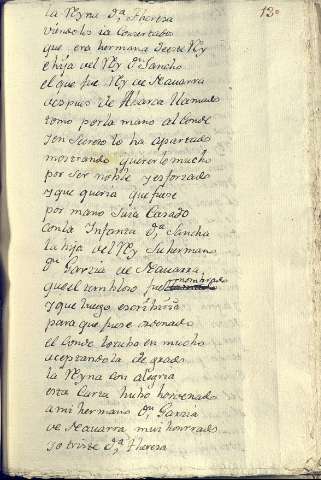 13º
la Reyna Dª Theresa
viendolos ya Concertados
que era hermana deste Rey
e hija del Rey Dn Sancho
el que fue Rey de Nauarra
despues de Abarca llamado
tomo por la mano al Conde
y en secreto lo ha apartado
mostrando quererlo mucho
por ser noble y esforzado
y que queria que fuese
por mano suia Casado
con la Infanta Dª Sancha
la hija del Rey su hermano
Dn Garzia de Nauarra,
que el tembloso fue nombrado
y que luego escribiria
para que fuese ordenado
el Conde lo tubo en mucho
aceptandola de grado
la Reyna con alegria
esta Carta hubo hordenado
a mi hermano Dn Garzia
de Nauarra mui honrrado
yo triste Dª Theresa